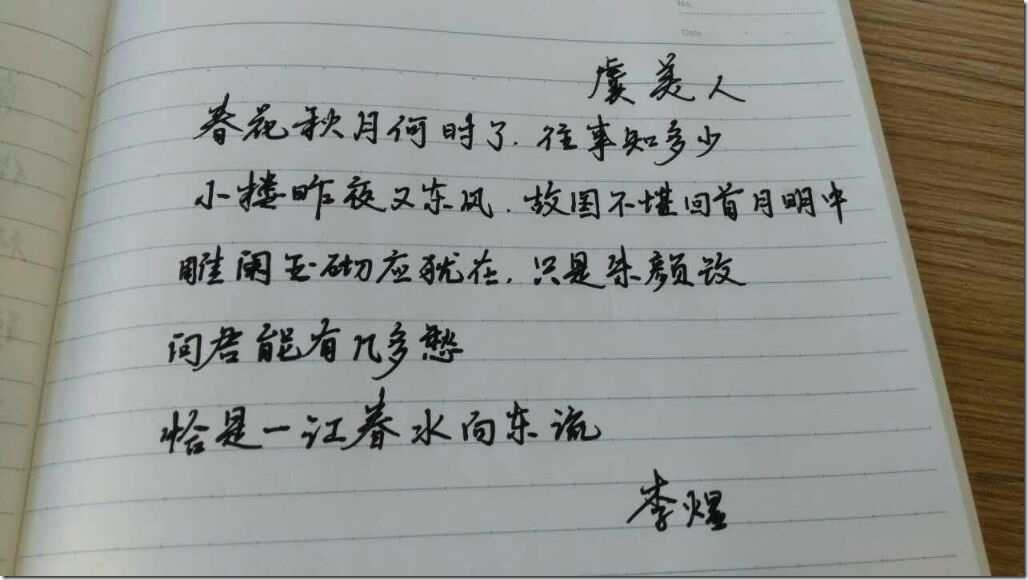 No.
Date
虞美人
春花秋月何时了.往事知多少
小楼昨夜又东风.故国不堪回首月明中
雕阑玉砌应犹在.只是朱颜改
问君能有几多愁
恰是一江春水向东流
李煜